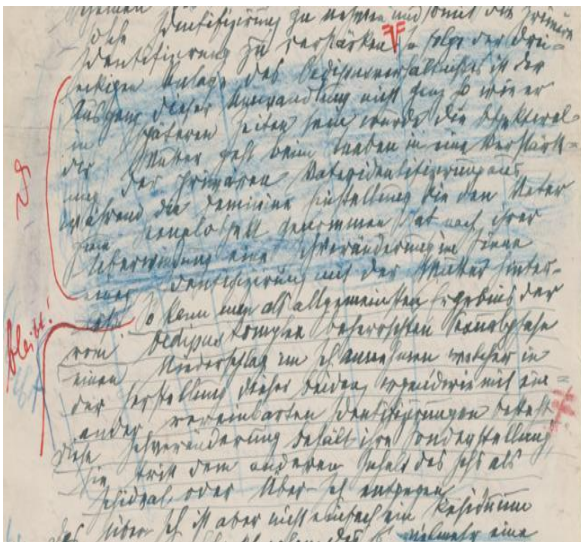 solche Identifizierung zu nehmen und somit die primäre
Identifizierung zu verstärken. In folge der drei-
eckigen Anlage des Oedipusverhältnisses ist der
Ausgang dieser Umwandlung nicht ganz so wie er
in späteren Zeiten sein würde die Objektwal
der Mutter geht beim Knaben in eine Verstärk-
ung der primären Vateridentifizirung aus
während die feminine Einstellung die den Vater
zum Sexualobjekt genommen hat nach ihrer
Überwindung eine Ichveränderung im Sinne
einer Identifizierung mit der Mutter hinter-
So kann man als allgemeinsten Ergebnis der
bleibt!
vom Oedipuskomplex beherrschten Sexualphase
einen Niederschlag im Ich annehmen welcher in
der Herstellung dieser beiden, irgendwie mit ein
ander vereinbarten Identifizirungen besteht
Diese Ichveränderung behält ihre Sonderstellung,
sie tritt dem anderen Inhalt des Ichs als
Ichideal oder Über-Ich entgegen
Das Über-Ich ist aber nicht einfach ein Residuum
vielmehr eine